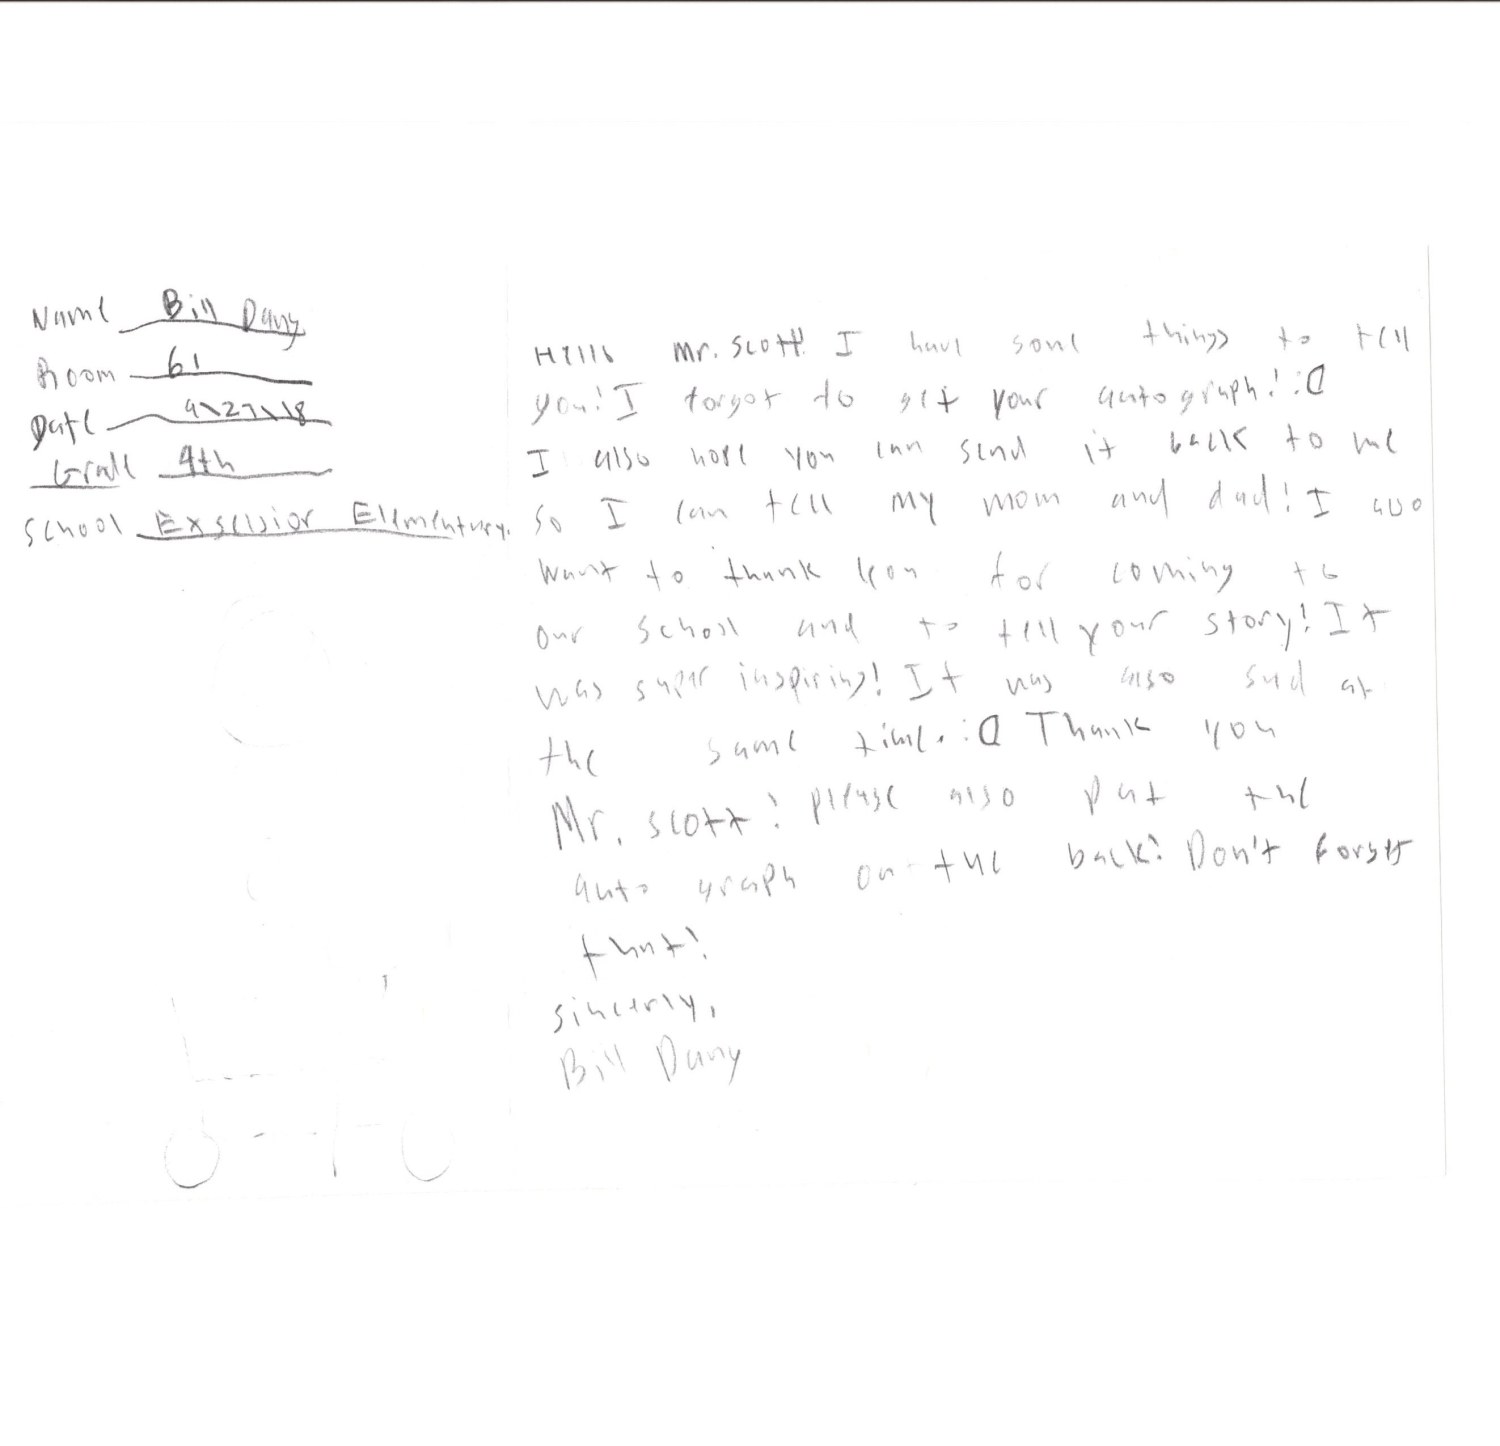 Name Bill Dang
Room 61
Date 9\27\18
Grade 4th
School Exselsior Elementary.
Hello Mr. Scott! I have some things to tell
you! I forgot to get your autograph! :D
I also hope you can send it back to me
so I can tell my mom and dad! I also
want to thank you for coming to
our school and to tell your story! It
was super inspiring! It was also sad at
the same time. :D Thank you
Mr. Scott! please also put the
auto graph on the back! Don't forget
that!
sincerly,
Bill Dang